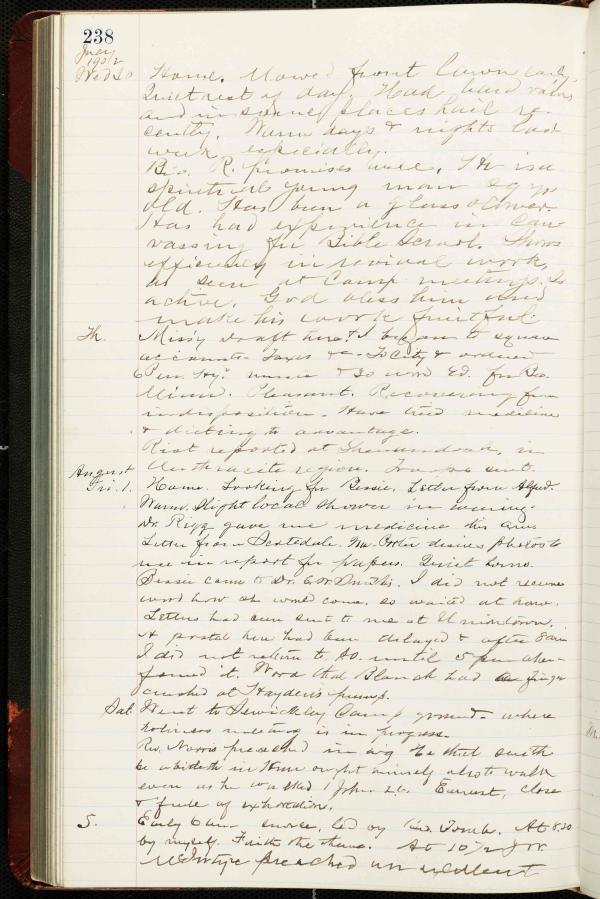 238
July
1902
Wed 30 Home. Mowed front lawn early.
Quiet rest of day. Had hard rains
and in some places hail re
cently. Warm days & nights last
week especially.
Bro. R. promises well. He is a
spiritual young man 29 yrs
old. Has been a glass blower.
Has had experience in can
vassing for Bible School. Shows
efficiency in revival work,
as seen at Camp meeting. Is
active. God bless him and
make his work fruitful
Th. Missy draft here. I began to square
accounts. Taxes &c. To City & ordered
Pleasant. Recovering from
indisposition. Have tried medicine
& dieting to advantage.
Riot reported at Shenandoah, in
Anthracite region. Troops sent.
August
Fri. 1. Home. Looking for Bessie. Letter from Alfred.
Warm. Slight local shower in evening.
Dr. Rigg gave me medicine this
Letter from Scottdale. desires photo to
use in report for papers. Quiet
Bessie came to Dr. Smith's. I did not receive
word how she would come, so waited at home.
Letters had been sent to me at Uniontown.
A postal here had been delayed & after 8 am
I did not return to P.O. until 5 pm when
found it. Word that Blanch had finger
crushed at Hayden's pump.
Sat. Went to Sewickley Camp ground where
holiness meeting is in progress.
Rev. Norris preached in a.m. He that saith
he abideth in Him ought himself also to walk
even as he walked 1 John 2:6. Earnest, close
& full of exhortation.
S. Early 6 am service, led by At 8.30
by myself. Faith the theme. At 10 1/2 J W.
McIntyre preached an excellent